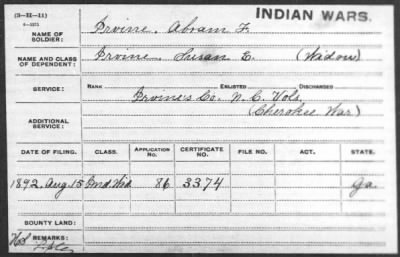 (3—II—11)
6—2273
INDIAN WARS.
NAME OF SOLDIER: Irvine, Abram F.
NAME AND CLASS OF DEPENDENT: Irvine, Susan E. (Widow)
SERVICE: RANK ENLISTED DISCHARGED
Irvine's Co. N.C. Vols.
(Cherokee War)
ADDITIONAL SERVICE:
DATE OF FILING. CLASS. APPLICATION No. CERTIFICATE No. FILE NO. ACT. STATE.
1892, Aug. 15 Ind. Wid 86 3374 Ga.
BOUNTY LAND:
REMARKS: